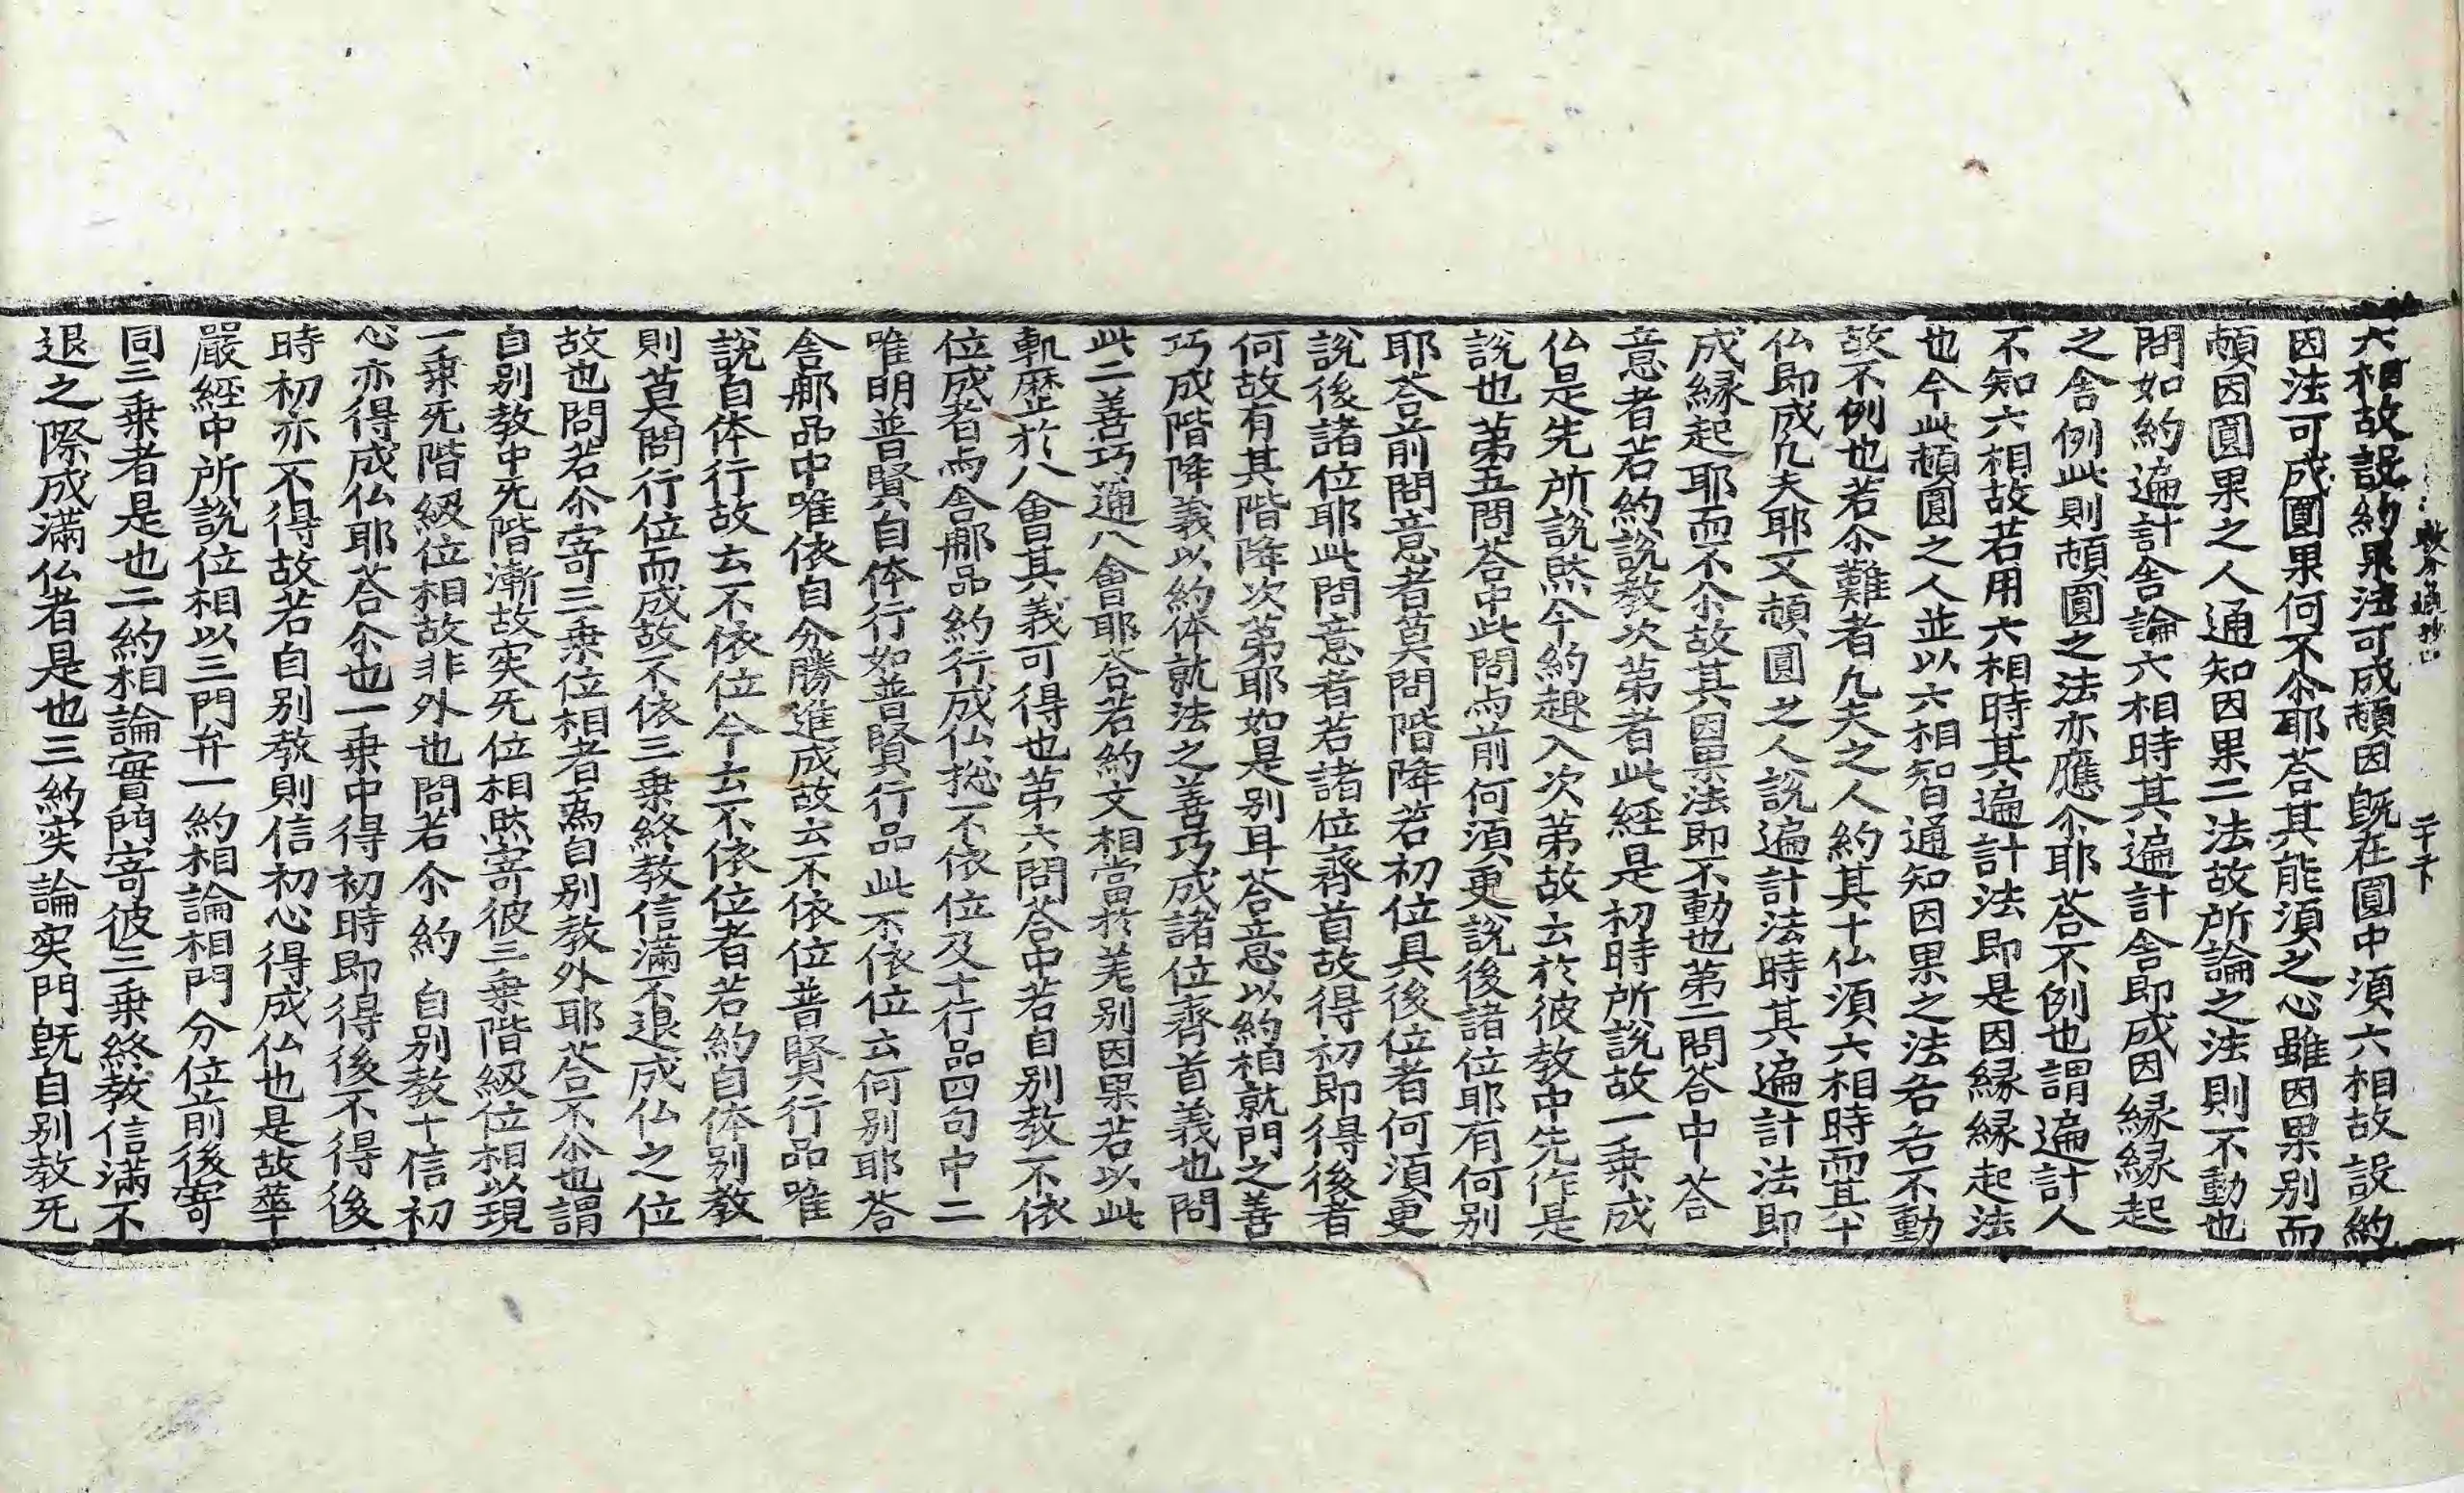 教分通抄四 二十下
六相故設約果法可成頓因既在圓中湏六相故設約
因法可成圓果何不尒耶荅其能湏之心雖因果别而
頓因圓果之人通知因果二法故所論之法則不動也
問如約遍計舎論六相時其遍計舎即成因縁縁起
之舎例此則頓圓之法亦應尒耶荅不例也謂遍計人
不知六相故若用六相時其遍計法即是因縁縁起法
也今此頓圓之人並以六相智通知因果之法各各不動
故不例也若尒難者凢夫之人約其十仏湏六相時而其十
仏即成凢夫耶又頓圓之人說遍計法時其遍計法即
成縁起耶而不尒故其因果法即不動也第二問荅中荅
意者若約說教次第者此經是初時所說故一乗成
仏是先所說然今約趣入次第故云於彼教中先作是
說也第五問荅中此問与前何湏更說後諸位耶有何别
耶荅前問意者莫問階降若初位具後位者何湏更
說後諸位耶此問意者若諸位齊首故得初即得後者
何故有其階降次第耶如是别耳荅意以約相就門之善
巧成階降義以約体就法之善巧成諸位齊首義也問
此二善巧通八會耶荅若約文相當於羌别因果若以此
軌歷於八會其義可得也第六問荅中若自别教不依
位成者与舎那品約行成仏揔不依位及十行品四句中二
唯明普賢自体行如普賢行品此不依位云何别耶荅
舎那品中唯依自分勝進成故云不依位普賢行品唯
說自体行故云不依位今云不依位者若約自体别教
則莫問行位而成故不依三乗終教信滿不退成仏之位
故也問若尒寄三乗位相者為自别教外耶荅不尒也謂
自别教中旡階漸故実旡位相然寄彼三乗階級位相以現
一乗旡階級位相故非外也問若尒約自别教十信初
心亦得成仏耶荅尒也一乗中得初時即得後不得後
時初亦不得故若自别教則信初心得成仏也是故華
嚴經中所說位相以三門弁一約相論相門分位前後寄
同三乗者是也二約相論實門寄彼三乗終教信滿不
退之際成滿仏者是也三約実論実門既自别教旡